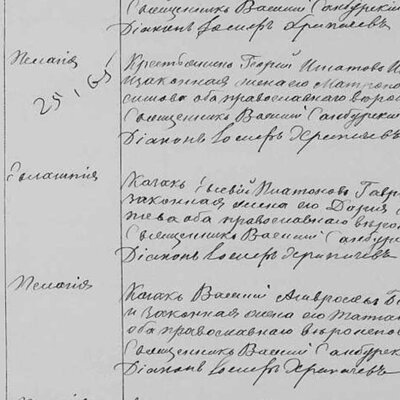 Священникъ Василій Санбурскій
Діаконъ Іосифъ Хрипачевъ
Пелагія
Крестьянинъ Георгій Игнатовъ
25/65
и законная жена его Матрона
симова оба православнаго вѣро
Священникъ Василій Санбурскій
Діаконъ Іосифъ Хрипачевъ
Евлампія
Казакъ Платоновъ Гавр
законная жена его Дарія
оба православнаго вѣро
Священникъ Василій Санбурс
Діаконъ Іосифъ Хрипачевъ
Пелагія
Казакъ Василій Амвросіевъ
и законная жена его Татіа
оба православнаго вѣроиспо
Священникъ Василій Санбурск
Діаконъ Іосифъ Хрипачевъ